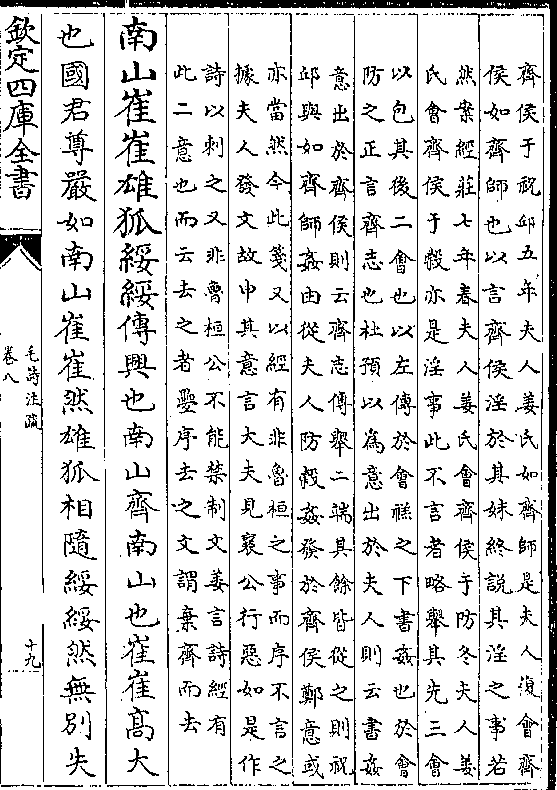 齊侯于祝邱五年夫人姜氏如齊師是夫人復會齊
侯如齊師也以言齊侯淫於其妹終説其淫之事若
然案經莊七年春夫人姜氏會齊侯于防冬夫人姜
氏會齊侯于穀亦是淫事此不言者略舉其先三會
以包其後二會也以左傳於會禚之下書姦也於會
防之正言齊志也杜預以為意出於夫人則云書姦
意出於齊侯則云齊志傳舉二端其餘皆從之則祝
邱與如齊師姦由從夫人防穀姦發於齊侯鄭意或
亦當然今此箋又以經有非魯桓之事而序不言之
據夫人發文故申其意言大夫見襄公行惡如是作
詩以刺之又非魯桓公不能禁制文姜言詩經有
此二意也而云去之者疊序去之文謂棄齊而去
南山崔崔雄狐綏綏傳興也南山齊南山也崔崔髙大
也國君尊嚴如南山崔崔然雄狐相隨綏綏然無別失
欽定四庫全書
毛詩注疏
卷八
十九